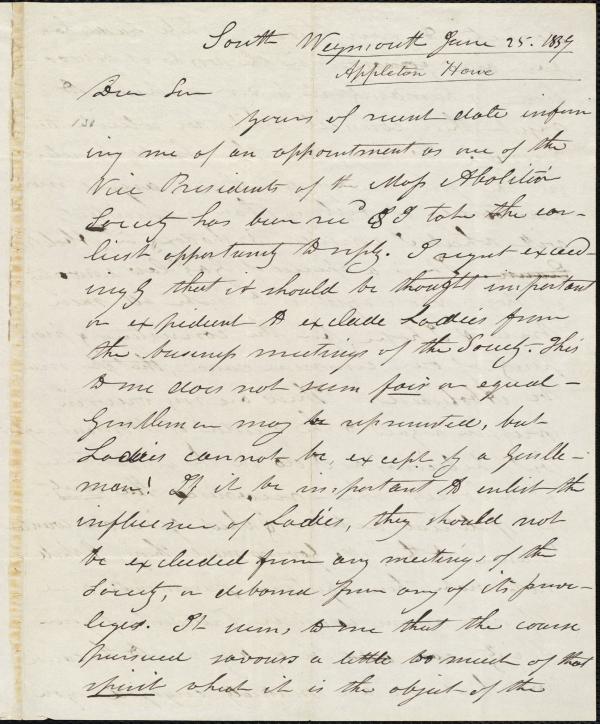 South Weymouth June 25. 1839
Appleton Howe
Dear Sir
Yours of recent date inform
ing me of an appointment as one of the
Vice Presidents of the Mass Abolition
Society has been recd & I take the ear-
liest opportunity to reply. I regret exceed-
ingly that it should be thought important
or expedient to exclude Ladies from
the business meetings of the Society. This
to me does not seem fair or equal –
Gentlemen may be represented, but
Ladies cannot be, except by a Gentle-
man! If it be important to enlist the
influence of Ladies, they should not
be excluded from any meetings of the
Society, or debarred from any of its privi-
leges. It seems to me that the course
pursued savours a little too much of that
spirit what it is the object of the